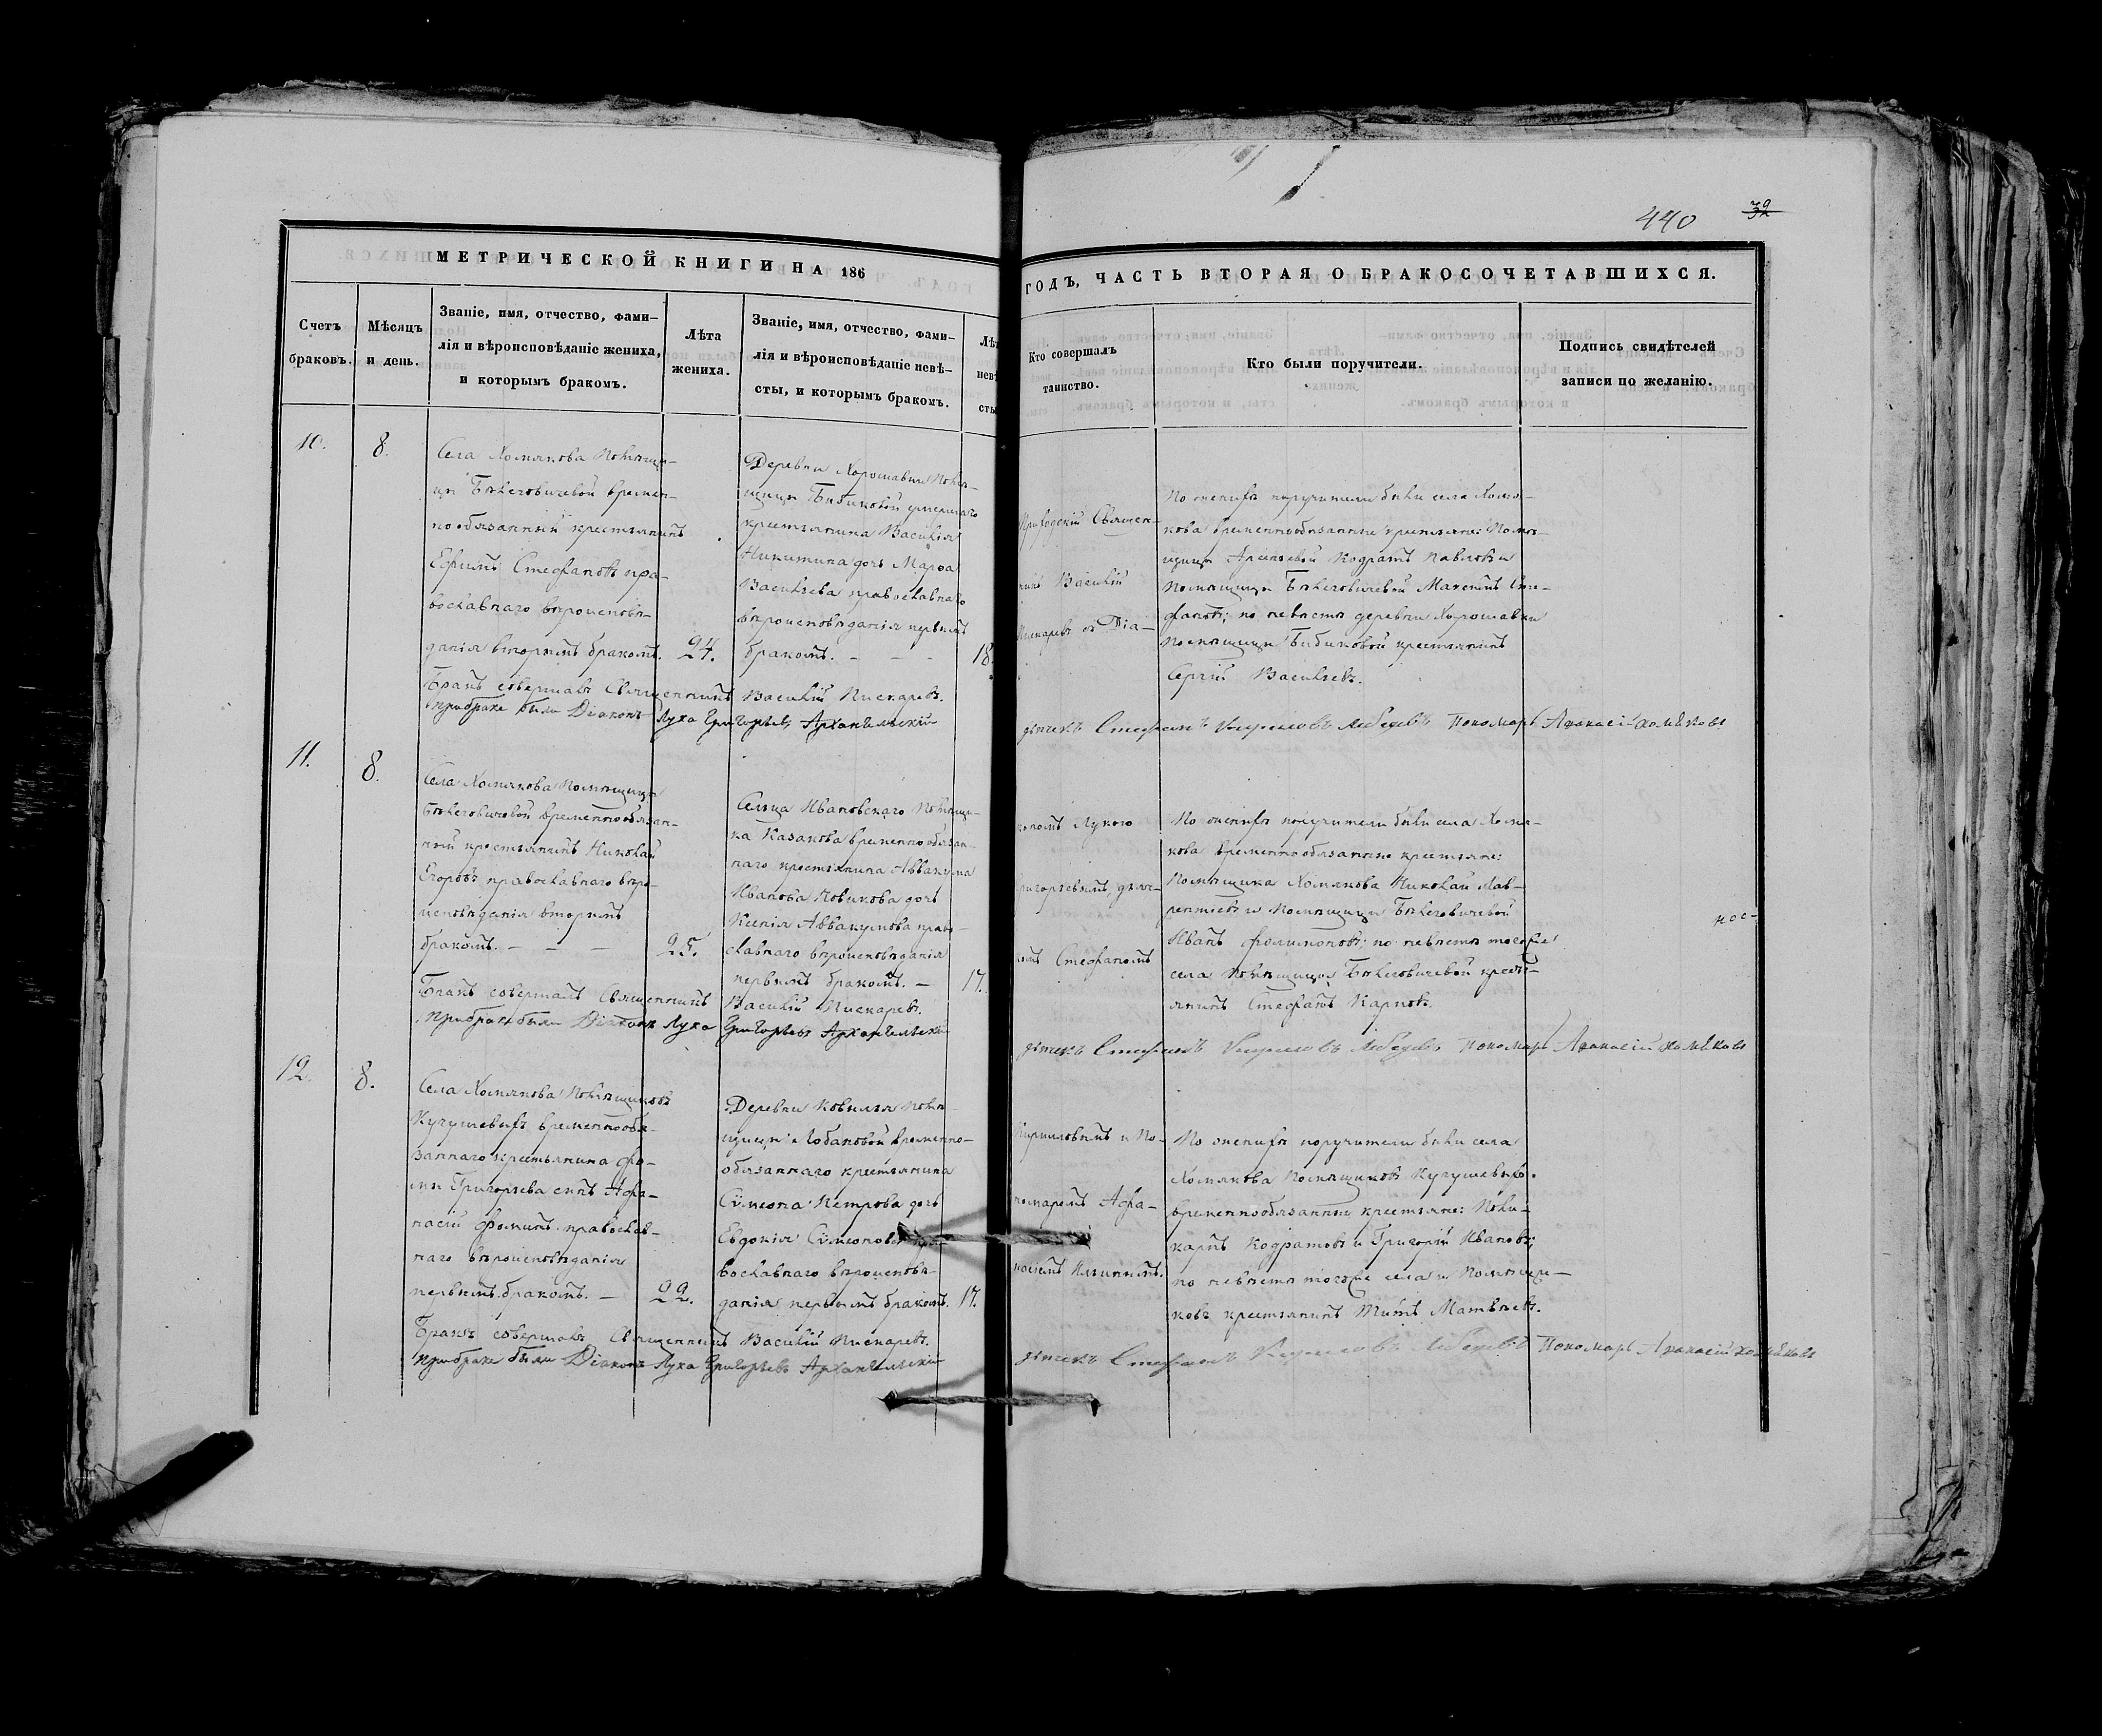 440 32
МЕТРИЧЕСКОЙ КНИГИ НА 186
ГОДЪ, ЧАСТЬ ВТОРАЯ О БРАКОСОЧЕТАВШИХСЯ.
Счетъ
браковъ.
Мѣсяцъ
и день.
Званіе, имя, отчество, фами-
лія и вѣроисповѣданіе жениха,
и которымъ бракомъ.
Лѣта
жениха.
Званіе, имя, отчество, фами-
лія и вѣроисповѣданіе невѣ-
сты, и которымъ бракомъ.
Лѣт
невѣ
сты
Кто совершалъ
таинство.
Кто были поручители.
Подпись свидѣтелей
записи по желанію.
10.
8.
Села Хомякова помѣщи-
цы Бѣлеговичевой времен-
нообязанный крестьянинъ
Ефимъ Стефановъ пра-
вославнаго вѣроисповѣ-
данія вторымъ бракомъ.
24.
Деревни Хорошавки помѣ-
щицы Бибиковой умершаго
крестьянина Василія
Никитина дочь Марѳа
Васильева православнаго
вѣроисповѣданія первымъ
бракомъ. — — —
18.
Приходскій Священ-
никъ Василій
Пискаревъ съ Діа-
По женихѣ поручители были села Хомя-
кова временнообязанные крестьяне: помѣ-
щицы Арсеньевой Кодратъ Павловъ и
помѣщицы Бѣлеговичевой Максимъ Сте-
фановъ; по невѣстѣ деревни Хорошавки
помѣщицы Бибиковой крестьянинъ
Сергій Васильевъ.
Бракъ совершалъ Священникъ Василій Пискаревъ.
при браке были Діаконъ Лука Григорьевъ Архангельскій
дьячекъ Стефанъ Кириловъ Лебедевъ Пономарь Афанасій Хомяковъ
11.
8.
Села Хомякова помѣщицы
Бѣлеговичевой временнообязан-
ный крестьянинъ Николай
Егоровъ православнаго вѣро-
исповѣданія вторымъ
бракомъ. — — —
25.
Сельца Ивановскаго помѣщи-
ка Казакова временнообязан-
наго крестьянина Аввакума
Иванова Новикова дочь
Ксенія Аввакумова право-
славнаго вѣроисповѣданія
первымъ бракомъ. —
17.
кономъ Лукою
Григорьевымъ, дьяч-
комъ Стефаномъ
По женихѣ поручители были села Хомя-
кова временнообязанные крестьяне:
помѣщика Хомякова Николай Лав-
рентіевъ и помѣщицы Бѣлеговичевой
Иванъ Филимоновъ; по невѣстѣ тогоже
села помѣщицы Бѣлеговичевой кресть-
янинъ Стефанъ Карповъ.
Бракъ совершалъ Священникъ Василій Пискаревъ.
при браке были Діаконъ Лука Григорьевъ Архангельскій
дьячекъ Стефанъ Кириловъ Лебедевъ Пономарь Афанасій Хомяковъ
12.
8.
Села Хомякова помѣщиковъ
Кугушевыхъ временнообя-
заннаго крестьянина Фо-
мы Григорьева сынъ Афа-
насій Фоминъ православ-
наго вѣроисповѣданія
первымъ бракомъ. —
22.
Деревни Ковылея помѣ-
щицы Лобановой временно-
обязаннаго крестьянина
Сѵмеона Петрова дочь
Евдокія Сѵмеонова пра-
вославнаго вѣроисповѣ-
данія первымъ бракомъ.
17.
Кириловымъ и По-
номаремъ Афа-
насіемъ Ильинымъ.
По женихѣ поручители были села
Хомякова помѣщиковъ Кугушевыхъ
временнообязанные крестьяне: Поли-
карпъ Кодратовъ и Григорій Ивановъ;
по невѣстѣ тогоже села и помѣщи-
ковъ крестьянинъ Титъ Матвѣевъ.
Бракъ совершалъ Священникъ Василій Пискаревъ.
при браке были Діаконъ Лука Григорьевъ Архангельскій
дьячекъ Стефанъ Кириловъ Лебедевъ Пономарь Афанасій Хомяковъ